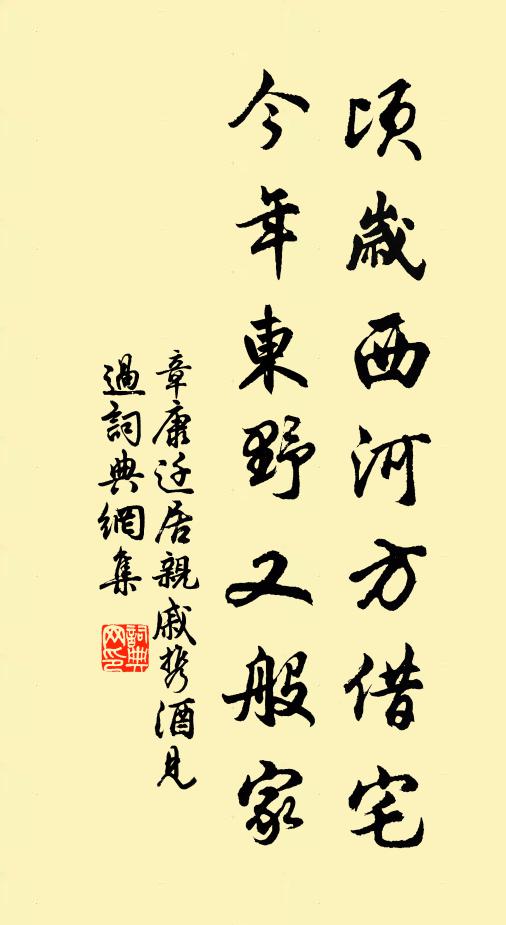 頃歲西河方借宅
今年東野又般家
章康迁居親戚携酒見
過詞典網集
詞典網印